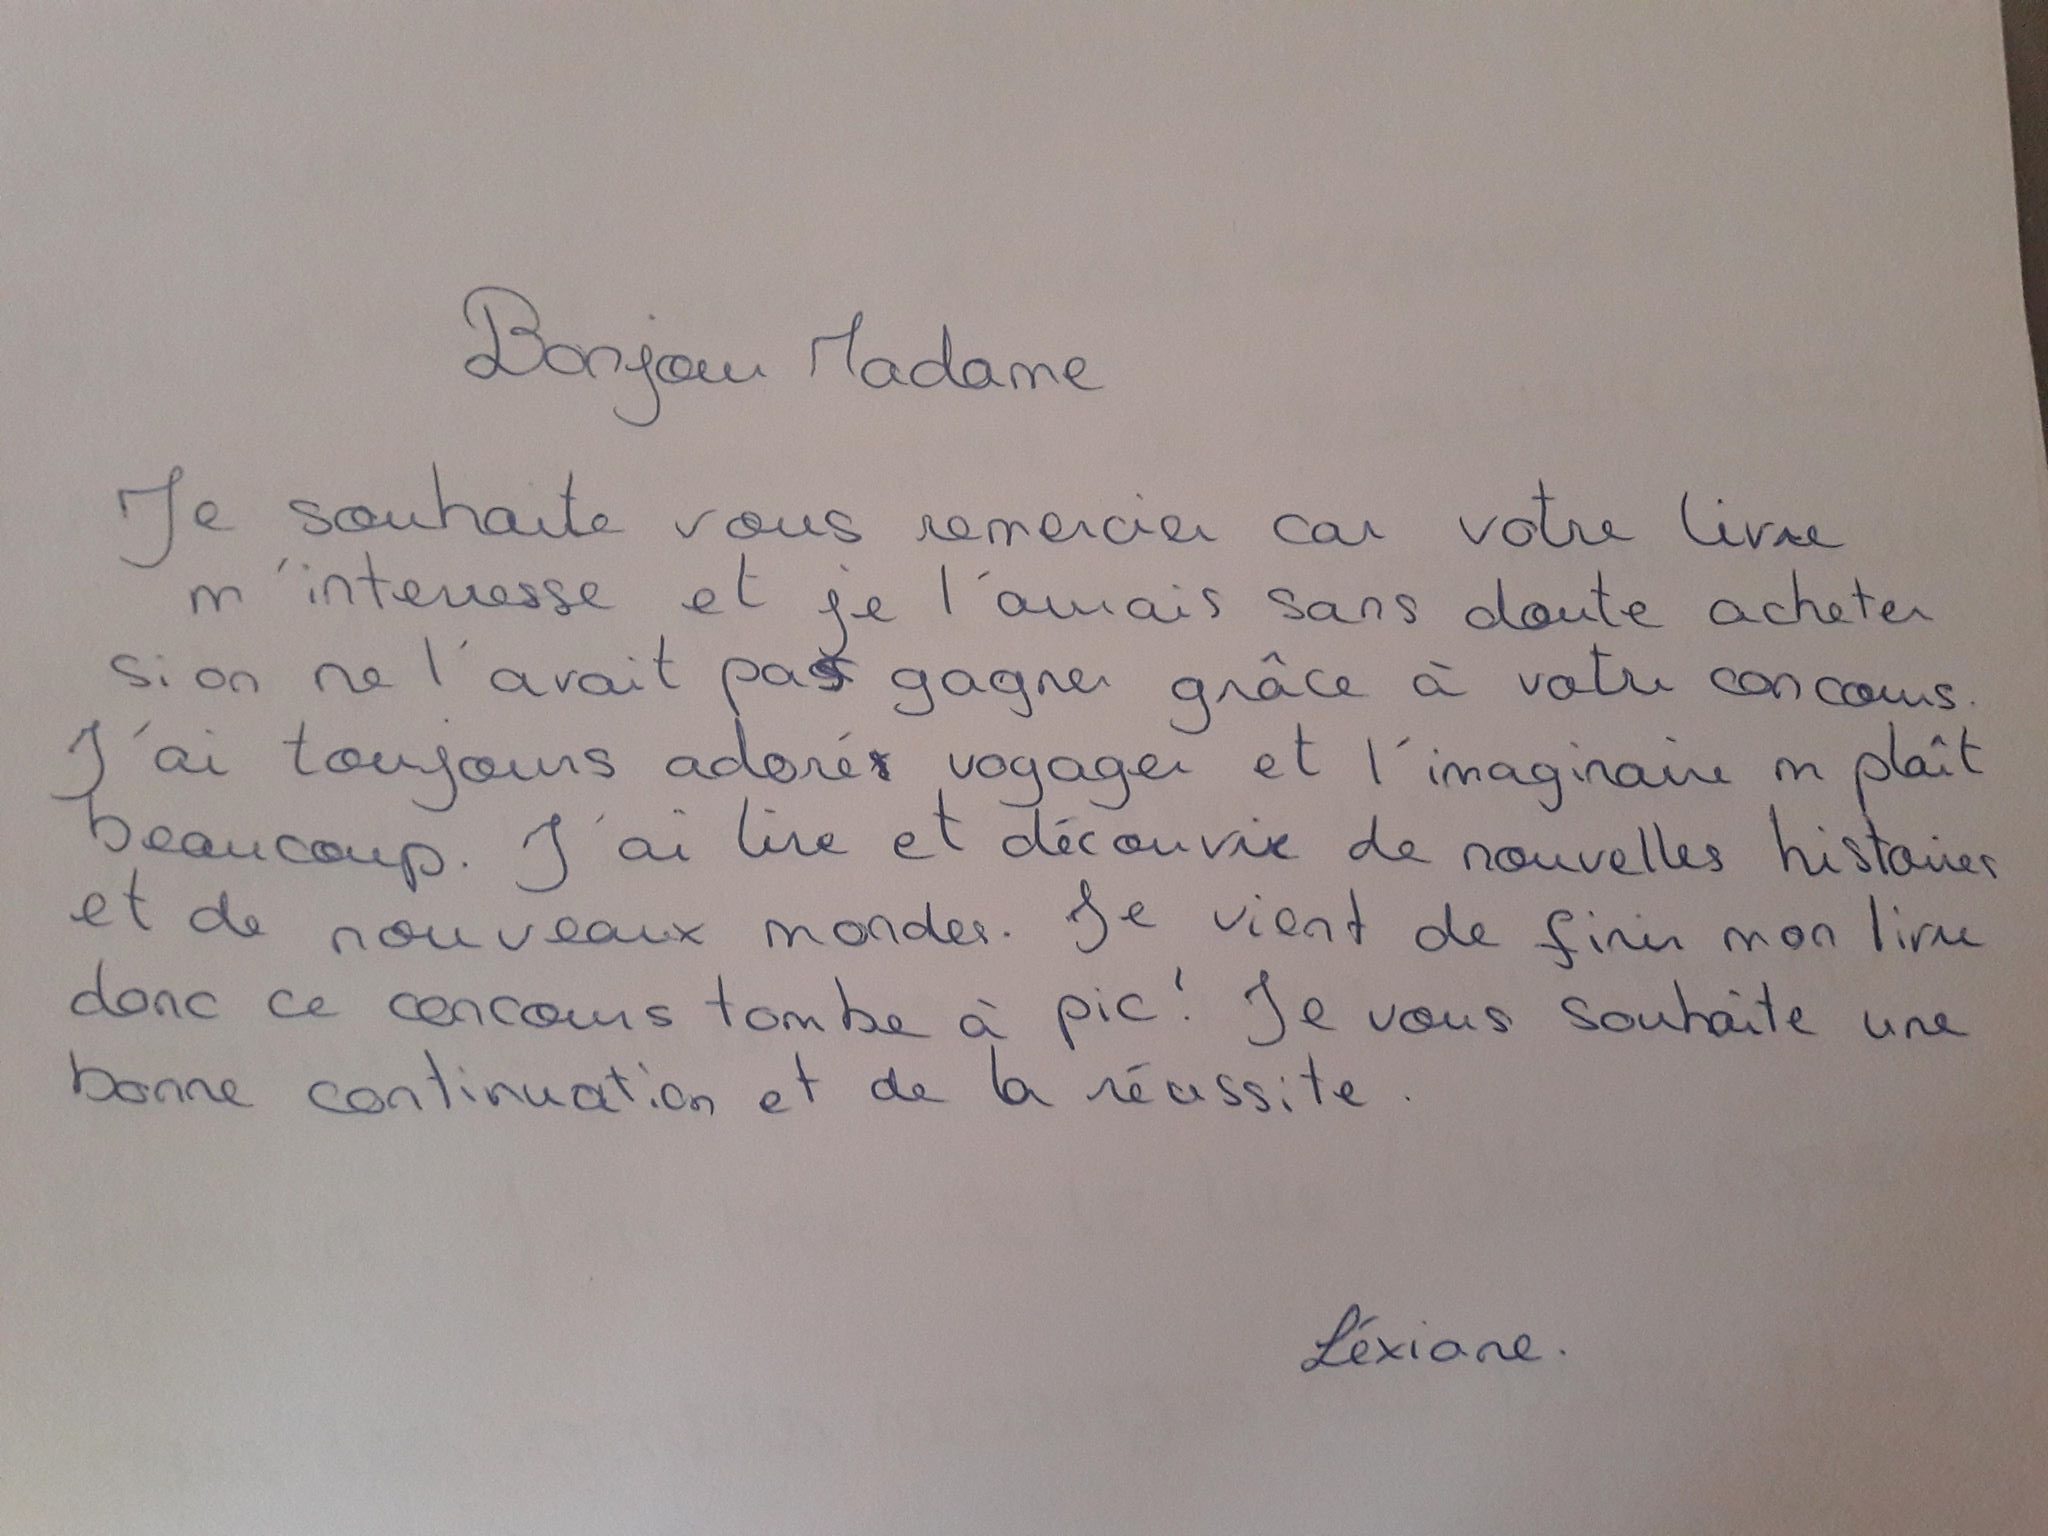 Bonjour Madame
Je souhaite vous remercier car votre livre
m'interresse et je l'aurais sans doute acheter
si on ne l'avait pas gagner grâce à votre concours.
J'ai toujours adoré voyager et l'imaginaire m plaît
beaucoup. J'ai lire et découvrir de nouvelles histoires
et de nouveaux mondes. Je vient de finir mon livre
donc ce concours tombe à pic! Je vous souhaite une
bonne continuation et de la réussite.
Léxiane.